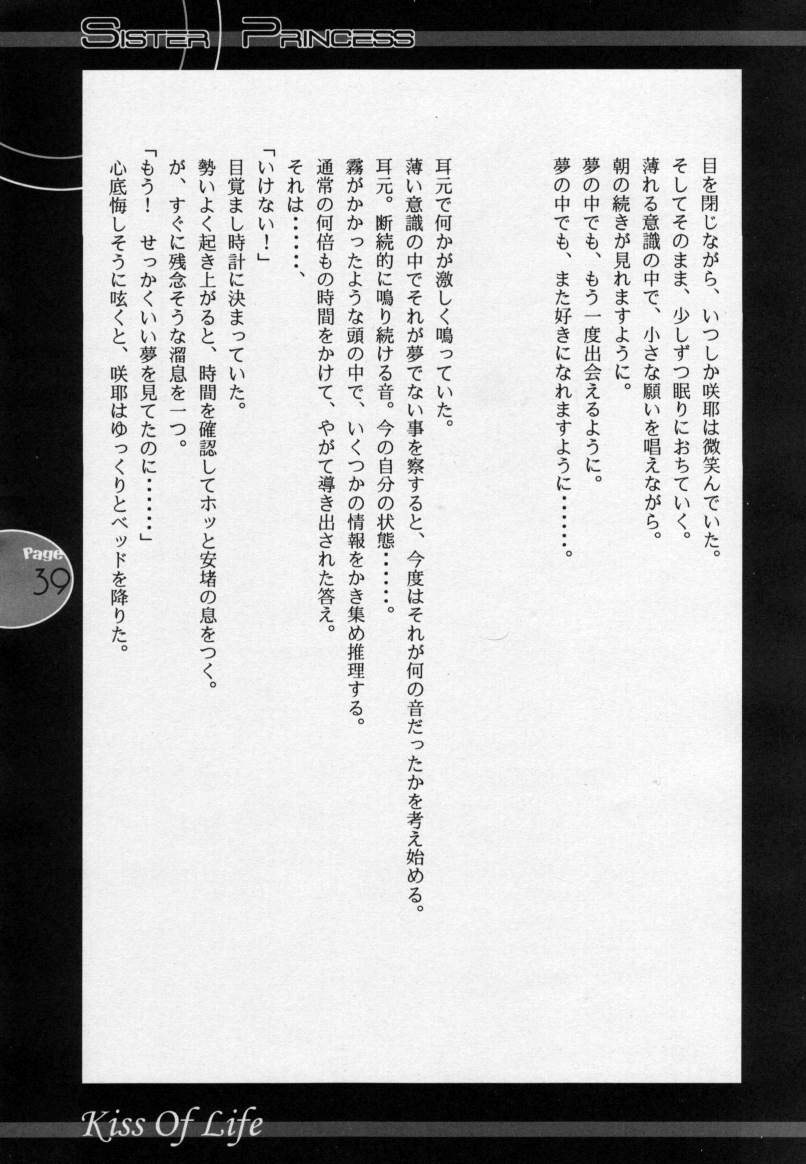 SISTER PRINCESS
目を閉じながら、いつしか咲耶は微笑んでいた。
そしてそのまま、少しずつ眠りにおちていく。
薄れる意識の中で、小さな願いを唱えながら。
朝の続きが見れますように。
夢の中でも、もう一度出会えるように。
夢の中でも、また好きになれますように・・・・・・。
耳元で何かが激しく鳴っていた。
薄い意識の中でそれが夢でない事を察すると、今度はそれが何の音だったかを考え始める。
耳元。断続的に鳴り続ける音。今の自分の状態・・・・・・。
霧がかかったような頭の中で、いくつかの情報をかき集め推理する。
通常の何倍もの時間をかけて、やがて導き出された答え。
それは・・・・・・、
「いけない！」
目覚まし時計に決まっていた。
勢いよく起き上がると、時間を確認してホッと安堵の息をつく。
が、すぐに残念そうな溜息を一つ。
「もう！　せっかくいい夢を見てたのに・・・・・・」
心底悔しそうに呟くと、咲耶はゆっくりとベッドを降りた。
Page
39
Kiss Of Life